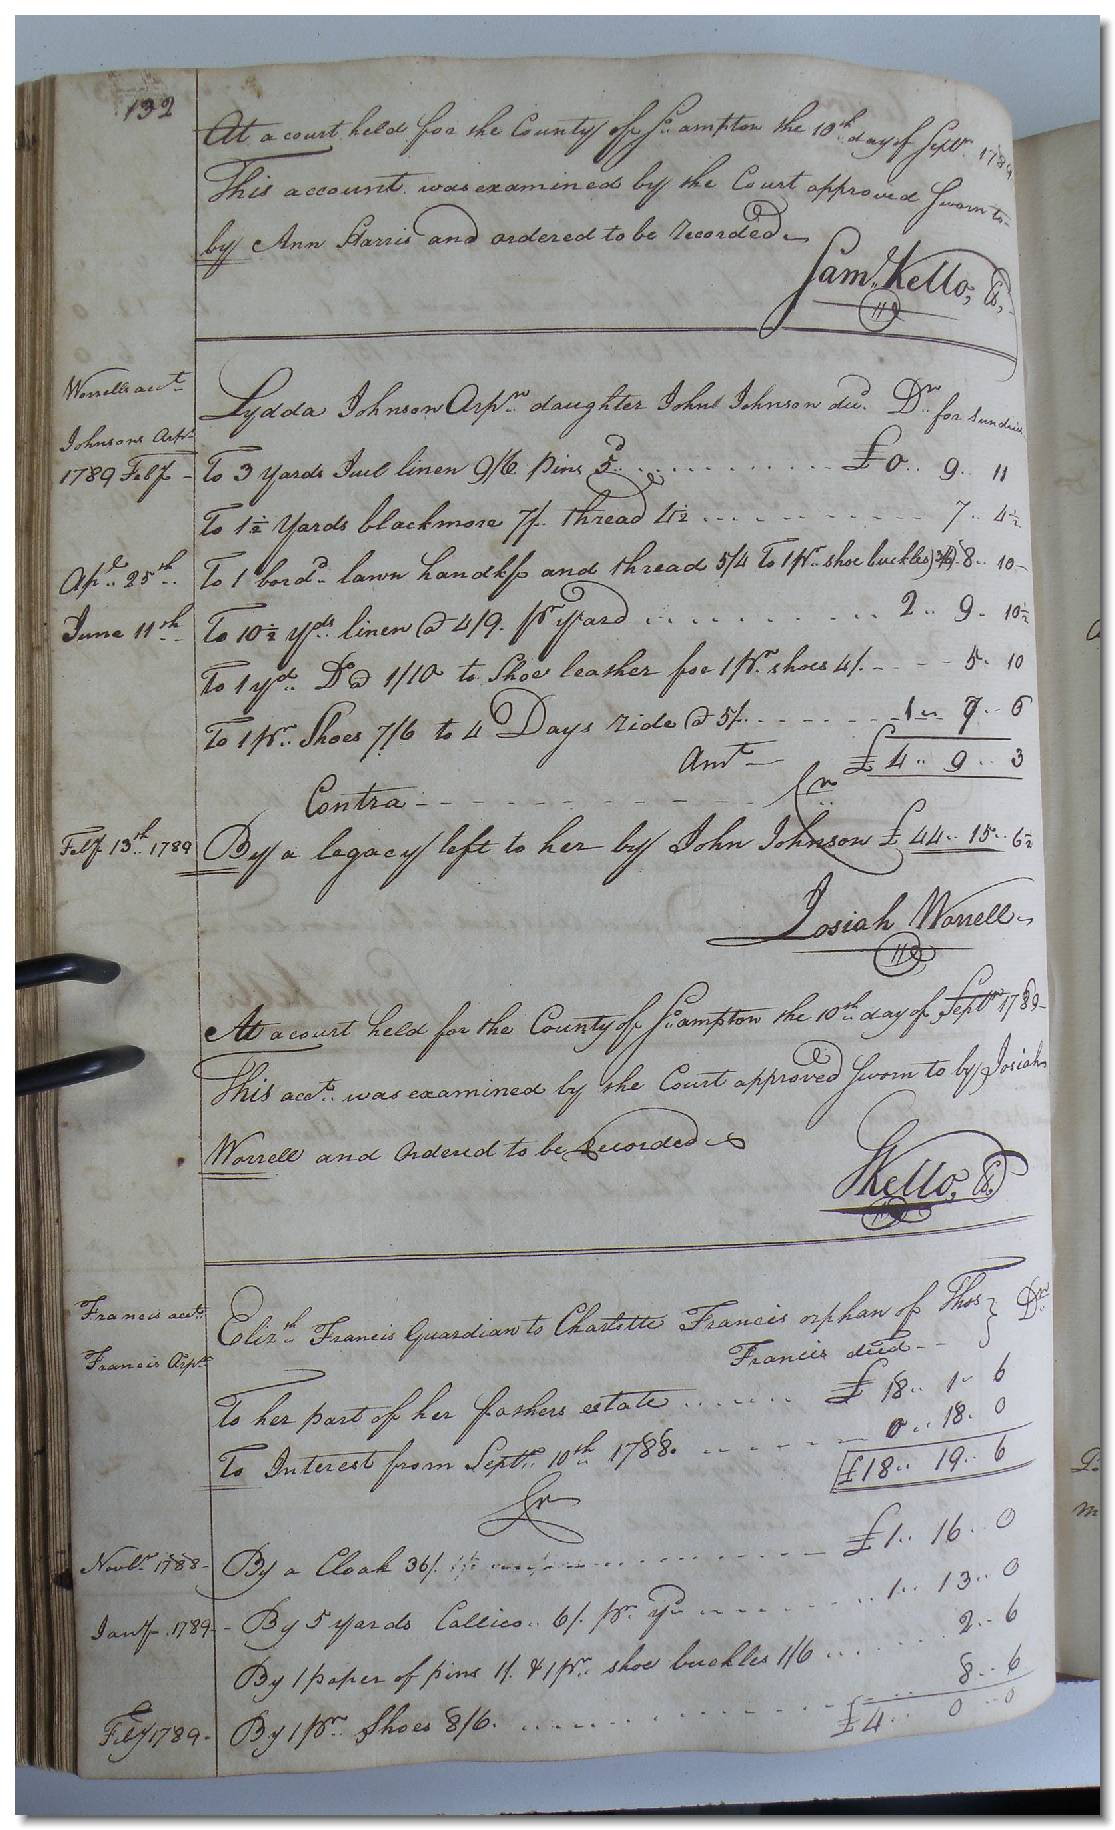 132
At a court held for the County of So. ampton the 10th day of Septr. 1789
This account was examined by the Court approved Sworn to
by Ann Harris and ordered to be recorded
Saml. Kello, Ct.
Worrells acct.
Lydda Johnson Orpn. daughter John Johnson decd. Dr. for sundries
Johnsons Orpn.
1789 Feby - To 3 yards linen 9/6. pins 5d. £0.. 9.. 11
To 1½ Yards blackmore 7/. thread 4½ 7.. 4½
Apl. 25th. To 1 bord. lawn handkf and thread 5/4 To 1 pr. shoe buckles 3/6 8.. 10
June 11th To 10½ yds. linen @ 4/9. pr yard 2.. 9.. 10½
To 1 yd. Do @ 1/10 to Shoe leather for 1 pr. shoes 4/. 5.. 10
To 1 pr. Shoes 7/6 to 4 Days ride @ 5/. 1.. 7.. 6
Amt £4.. 9.. 3
Contra Cr
Feby 13th. 1789 By a legacy left to her by John Johnson £44.. 15.. 6½
Josiah Worrell
At a court held for the County of So. ampton the 10th day of Septr 1789
This acct. was examined by the Court approved Sworn to by Josiah
Worrell and Ordered to be Recorded
SKello, Ct.
Francis acct.
Elizth Francis Guardian to Charlotte Francis orphan of Thos } Dr.
Francis Orpn.
Francis decd
To her part of her fathers estate £18.. 1.. 6
To Interest from Septr. 10th 1788. 0.. 18.. 0
£18.. 19.. 6
Cr
Novbr. 1788 - By a Cloak 36/. £1.. 16.. 0
Jany. 1789 - By 5 yards Callico.. 6/. pr. yd 1.. 13.. 0
By 1 paper of pins 1/. & 1 pr. shoe buckles 1/6 2.. 6
Feby 1789 - By 1 pr. Shoes 8/6. 8.. 6
£4.. 0.. 0